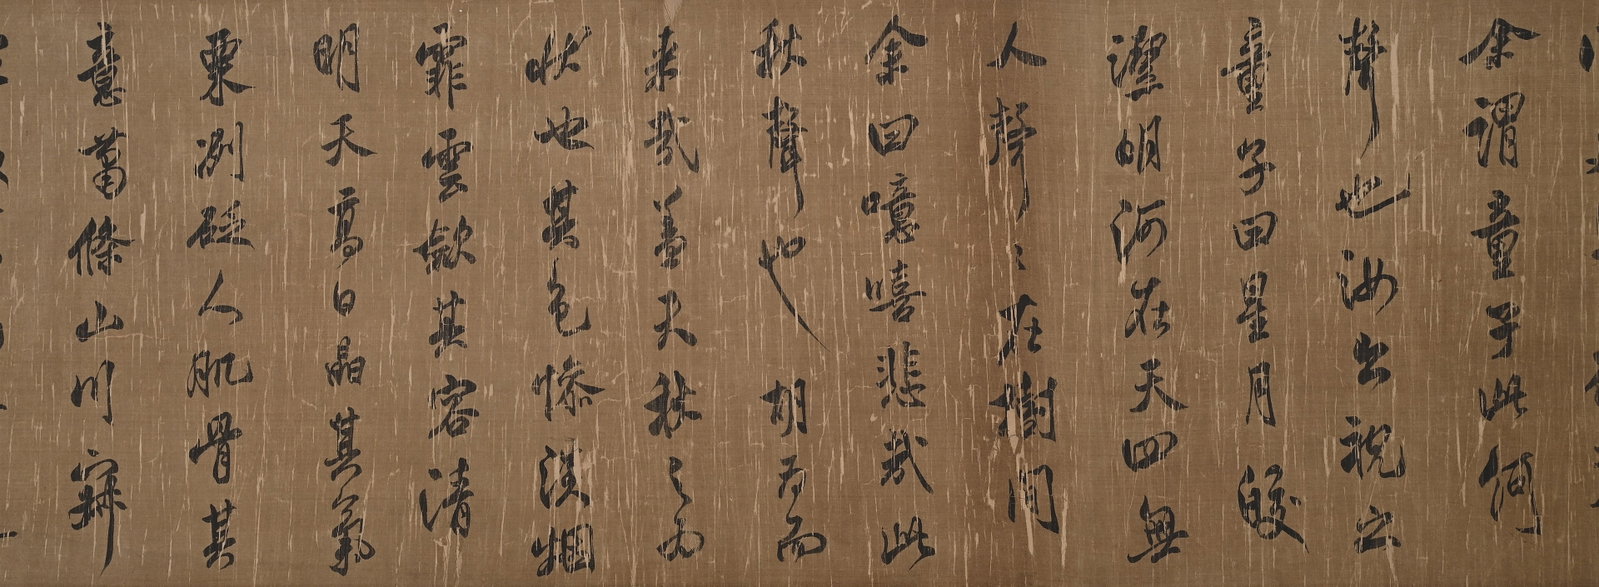 余謂童子此何
聲也汝出視之
童子曰星月皎
潔明河在天四無
人聲々在樹間
余曰噫嘻悲哉此
秋聲也胡為而
来哉蓋夫秋之為
狀也其色惨淡烟
霏雲斂其容清
明天高日晶其氣
栗冽砭人肌骨其
意蕭條山川寂